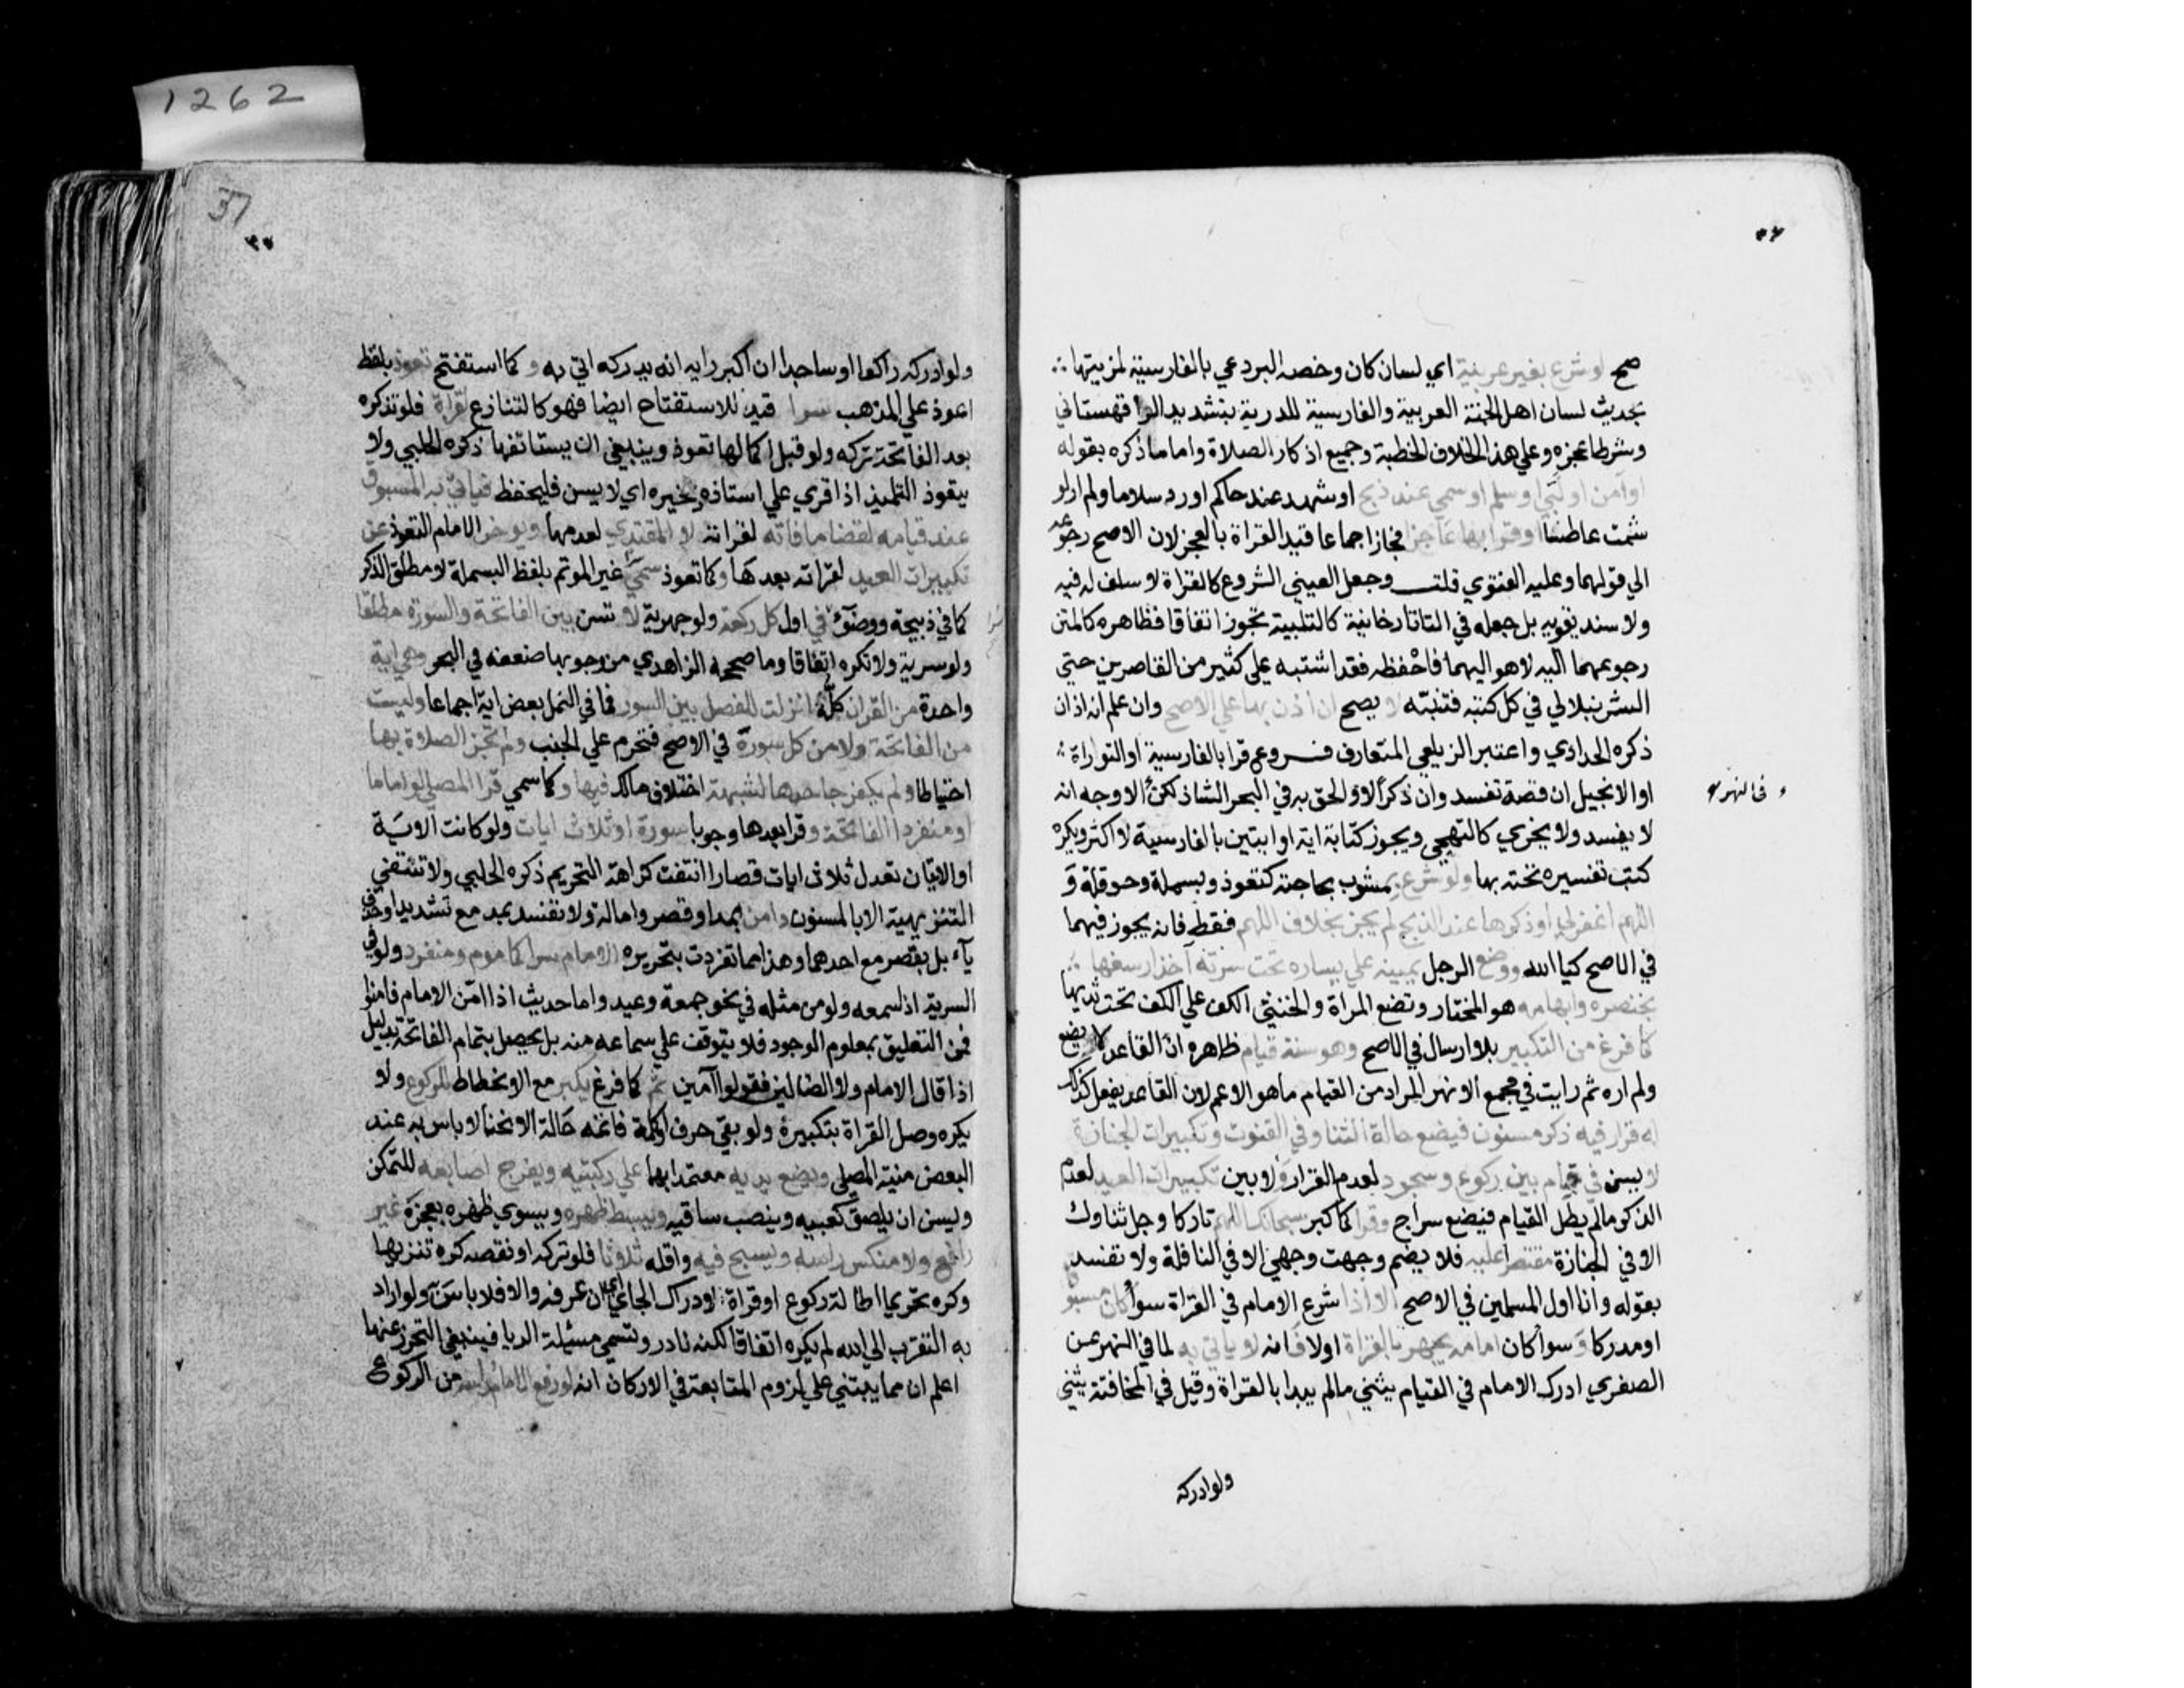 1262
37
٣٧
٣٦
صح لو شرع بغير عربية اي لسان كان وخصه البردعي بالفارسية لمزيتها
بحديث لسان اهل الجنة العربية والفارسية الدرية بتشديد الرا قهستاني
وشرطا عجزه وعلي هذا الخلاف الخطبة وجميع اذكار الصلاة واما ما ذكره بقوله
او آمن او لبي او سلم او سمي عند ذبح او شهد عند حاكم او رد سلاما ولم ار لو
شمت عاطسا او قرا بها عاجزا فجاز اجماعا قيد القراة بالعجز لان الاصح رجوعه
الي قولهما وعليه الفتوي قلت وجعل العيني الشروع كالقراة لا سلف له فيه
ولا سند يقويه بل جعله في التاتارخانية كالتلبية تجوز اتفاقا فظاهره كالمتن
رجوعهما اليه لا هو اليهما فاحفظه فقد اشتبه علي كثير من القاصرين حتي
الشرنبلالي في كل كتبه فتنبه لا يصح ان اذن بها علي الاصح وان علم انه اذان
ذكره الحدادي واعتبر الزيلعي المتعارف فروع قرا بالفارسية او التوراة
او الانجيل ان قصة تفسد وان ذكرا لا والحق به في البحر الشاذ لكن الاوجه انه
في النهر
لا يفسد ولا يجزي كالتهجي ويجوز كتابة اية او ايتين بالفارسية لا اكثر ويكره
كتب تفسيره تحته بها ولو شرع بمشوب بحاجته كتعوذ وبسملة وحوقلة و
اللهم اغفر لي او ذكرها عند الذبح لم يجز بخلاف اللهم فقط فانه يجوز فيهما
في الاصح كيا الله ووضع الرجل يمينه علي يساره تحت سرته آخذا رسغها
بخنصره وابهامه هو المختار وتضع المراة والخنثي الكف علي الكف تحت ثديها
كما فرغ من التكبير بلا ارسال في الاصح وهو سنة قيام ظاهره ان القاعد لا يضع
ولم اره ثم رايت في مجمع الانهر المراد من القيام ما هو الاعم لان القاعد يفعل كذلك
له قرار فيه ذكر مسنون فيضع حالة الثنا وفي القنوت وتكبيرات الجنازة
لا يسن في قيام بين ركوع وسجود لعدم القرار ولا بين تكبيرات العيد لعدم
الذكر ما لم يطل القيام فيضع سراج وقرا كما كبر سبحانك اللهم تاركا وجل ثناوك
الا في الجنازة مقتصرا عليه فلا يضم وجهت وجهي الا في النافلة ولا تفسد
بقوله وانا اول المسلمين في الاصح الا اذا شرع الامام في القراة سوأ كان مسبوقا
او مدركا وسوا كان امامه يجهر بالقراة او لا فانه لا ياتي به لما في النهر عن
الصغري ادرك الامام في القيام يثني ما لم يبدا بالقراة وقيل في المخافتة يثني
ولو ادركه
ولو ادركه راكعا او ساجدا ان اكبر رايه انه يدركه اتي به وكما استفتح تعوذ بلفظ
اعوذ علي المذهب سرا قيد للاستفتاح ايضا فهو كالتنازع لقراة فلو تذكره
بعد الفاتحة تركه ولو قبل اكمالها تعوذ وينبغي ان يستانفها ذكره الحلبي ولا
يتعوذ التلميذ اذا قري علي استاذه ذخيره اي لا يسن فليحفظ فياتي به المسبوق
عند قيامه لقضا ما فاته لقراته لا المقتدي لعدمها ويوخر الامام التعوذ عن
تكبيرات العيد لقراته بعدها وكما تعوذ سمي غير الموتم بلفظ البسملة لا مطلق الذكر
كما في ذبيحة ووضوء في اول كل ركعة ولو جهرية لا تسن بين الفاتحة والسورة مطلقا
ولو سرية ولا تكره اتفاقا وما صححه الزاهدي من وجوبها ضعفه في البحر وهي اية
واحدة من القران كله انزلت للفصل بين السور فما في النمل بعض اية اجماعا وليست
من الفاتحة ولا من كل سورة في الاصح فتحرم علي الجنب ولم تجز الصلاة بها
احتياطا ولم يكفر جاحدها لشبهة اختلاف مالك فيها وكما سمي قرا المصلي لو اماما
او منفردا الفاتحة وقرا بعدها وجوبا سورة او ثلاث ايات ولو كانت الاية
او الايتان تعدل ثلاث ايات قصارا انتفت كراهة التحريم ذكره الحلبي ولا تنتفي
التنزيهية الا بالمسنون وامن بمد وقصر وامالة ولا تفسد بمد مع تشديد او حذف
يآء بل بقصر مع احدهما وهذا مما تفردت بتحريره الامام سرا كماموم ومنفرد ولو في
السرية اذا سمعه ولو من مثله في نحو جمعة وعيد واما حديث اذا امن الامام فامنوا
فمن التعليق بمعلوم الوجود فلا يتوقف علي سماعه منه بل يحصل بتمام الفاتحة بدليل
اذا قال الامام ولا الضالين فقولوا آمين ثم كما فرغ يكبر مع الانحطاط للركوع ولا
يكره وصل القراة بتكبيره ولو بقي حرف او كلمة فاتمه حالة الانحنا لا باس به عند
البعض منية المصلي ويضع يديه معتمدا بهما علي ركبتيه ويفرج اصابعه للتمكن
ويسن ان يلصق كعبيه وينصب ساقيه ويبسط ظهره ويسوي ظهره بعجزه غير
رافع ولا منكس راسه ويسبح فيه واقله ثلاثا فلو تركه او نقصه كره تنزيها
وكره تحريما اطالة ركوع او قراة لادراك الجاي اي ان عرفه والا فلا باس ولو اراد
به التقرب الي الله لم يكره اتفاقا لكنه نادر وتسمي مسئلة الريا فينبغي التحرز عنها
اعلم ان مما يبتني علي لزوم المتابعة في الاركان انه لو رفع الامام راسه من الركوع